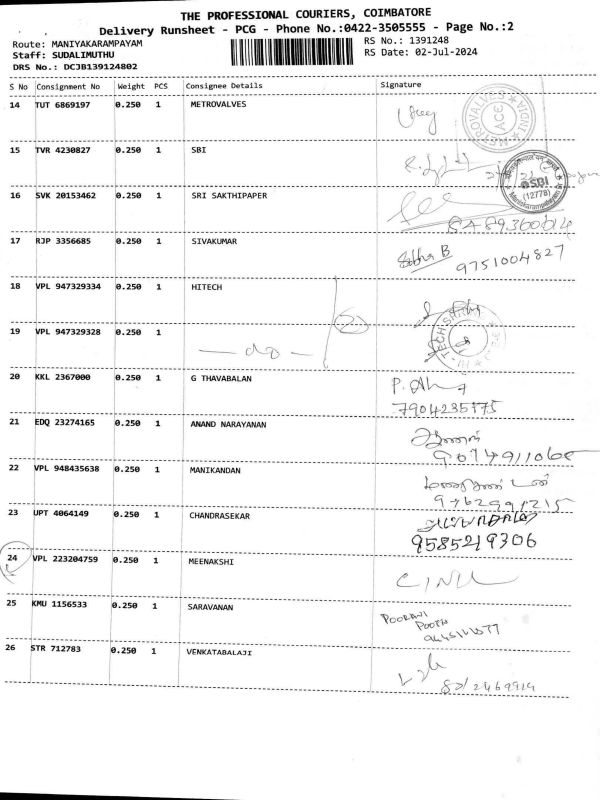 THE PROFESSIONAL COURIERS, COIMBATORE
Delivery Runsheet - PCG - Phone No.:0422-3505555 - Page No.:2
Route: MANIYAKARAMPAYAM RS No.: 1391248
Staff: SUDALIMUTHU RS Date: 02-Jul-2024
DRS No.: DCJB139124802
S No Consignment No Weight PCS Consignee Details Signature
14 TUT 6869197 0.250 1 METROVALVES
15 TVR 4230827 0.250 1 SBI
SBI
(12778)
16 SVK 20153462 0.250 1 SRI SAKTHIPAPER
17 RJP 3356685 0.250 1 SIVAKUMAR
9751004827
18 VPL 947329334 0.250 1 HITECH
19 VPL 947329328 0.250 1
— do —
20 KKL 2367000 0.250 1 G THAVABALAN
21 EDQ 23274165 0.250 1 ANAND NARAYANAN
22 VPL 948435638 0.250 1 MANIKANDAN
23 UPT 4064149 0.250 1 CHANDRASEKAR
9585219306
24 VPL 223204759 0.250 1 MEENAKSHI
25 KMU 1156533 0.250 1 SARAVANAN
26 STR 712783 0.250 1 VENKATABALAJI